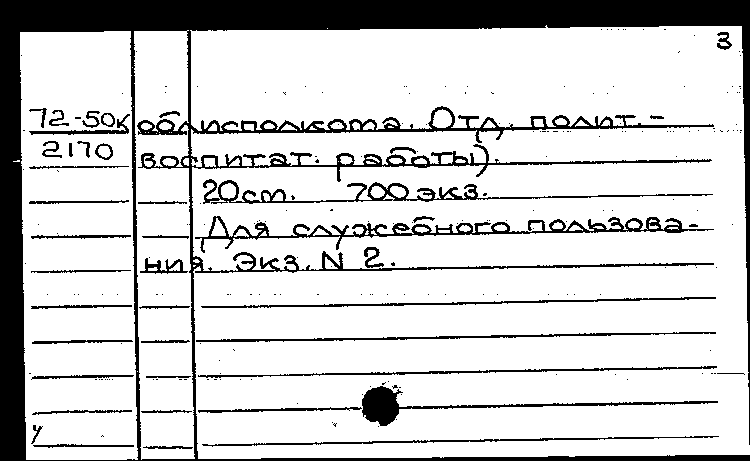 3
72-50к облисполкома. Отд. полит.-
2170 воспитат. работы).
20 см. 700 экз.
Для служебного пользова-
ния. Экз. N 2.
у